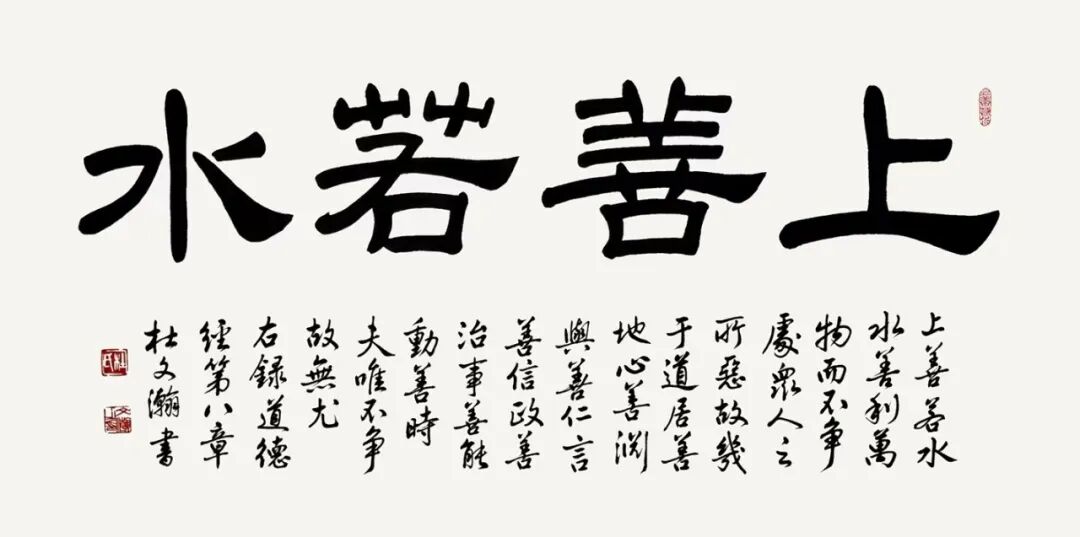 上善若水
上善若水
水善利萬
物而不争
處眾人之
所惡故幾
于道居善
地心善淵
與善仁言
善信政善
治事善能
動善時
夫唯不争
故無尤
右録道德
經第八章
杜文瀚書
杜氏